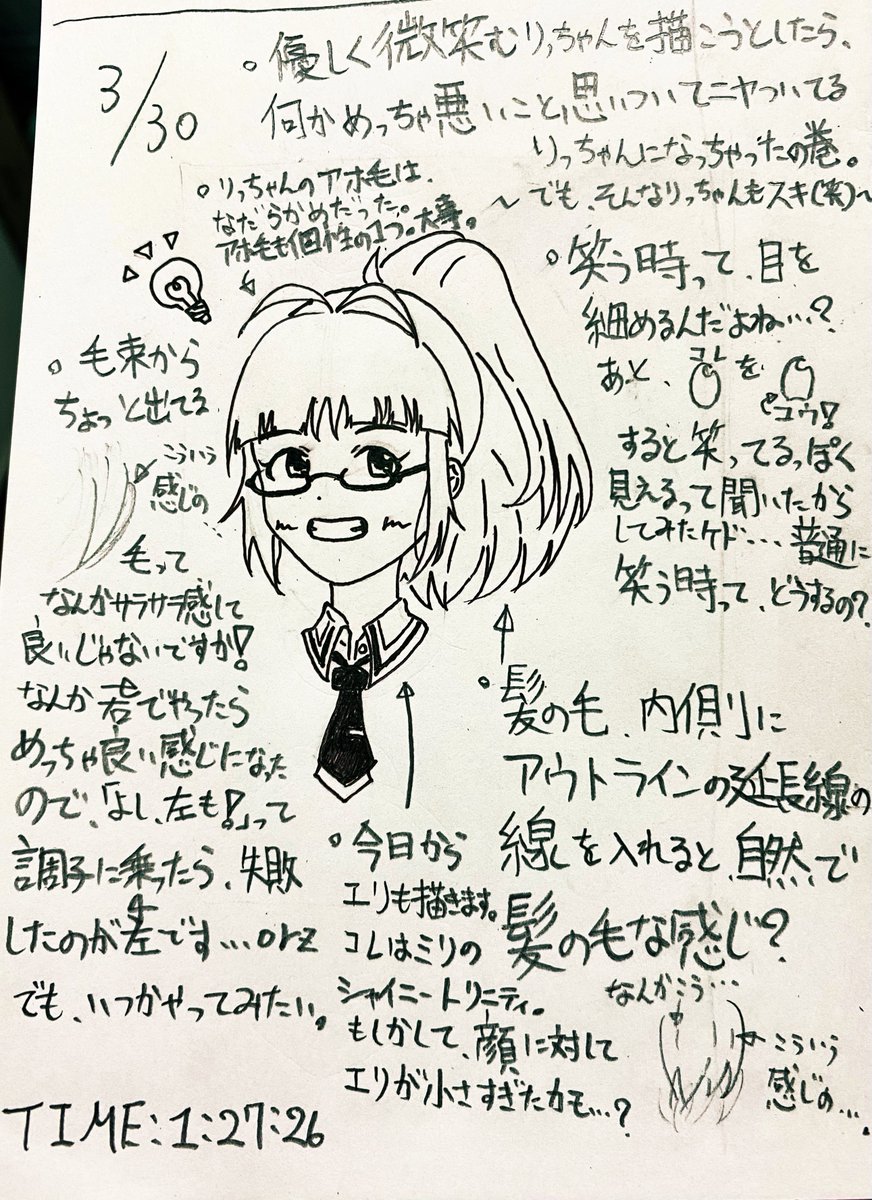 3/30
。優しく微笑むりっちゃんを描こうとしたら、
何かめっちゃ悪いこと思いついてニヤついてる
りっちゃんになっちゃったの巻。
〜でも、そんなりっちゃんもスキ(笑)〜
。りっちゃんのアホ毛は、
なだらかめだった。
アホ毛も個性の1つ。大事。
。笑う時って、目を
細めるんだよね…?
あと、
コレ
を
コウ!
すると笑ってるっぽく
見えるって聞いたから
してみたケド…. 普通に
笑う時って、どうするの?
。毛束から
ちょっと出てる
こういう
感じの
毛って
なんかサラサラ感して
良いじゃないですか!
なんか右でやったら
めっちゃ良い感じになった
ので、「よし、左も!」って
調子に乗ったら、失敗
したのが左です…orz
でも、いつかやってみたい。
。髪の毛、内側に
アウトラインの延長線の
線を入れると、自然で
髪の毛な感じ?
なんかこう…
こういう
感じの…
。今日から
エリも描きます。
コレはミリの
シャイニートリニティ。
もしかして、顔に対して
エリが小さすぎたカモ…?
TIME:1:27:26